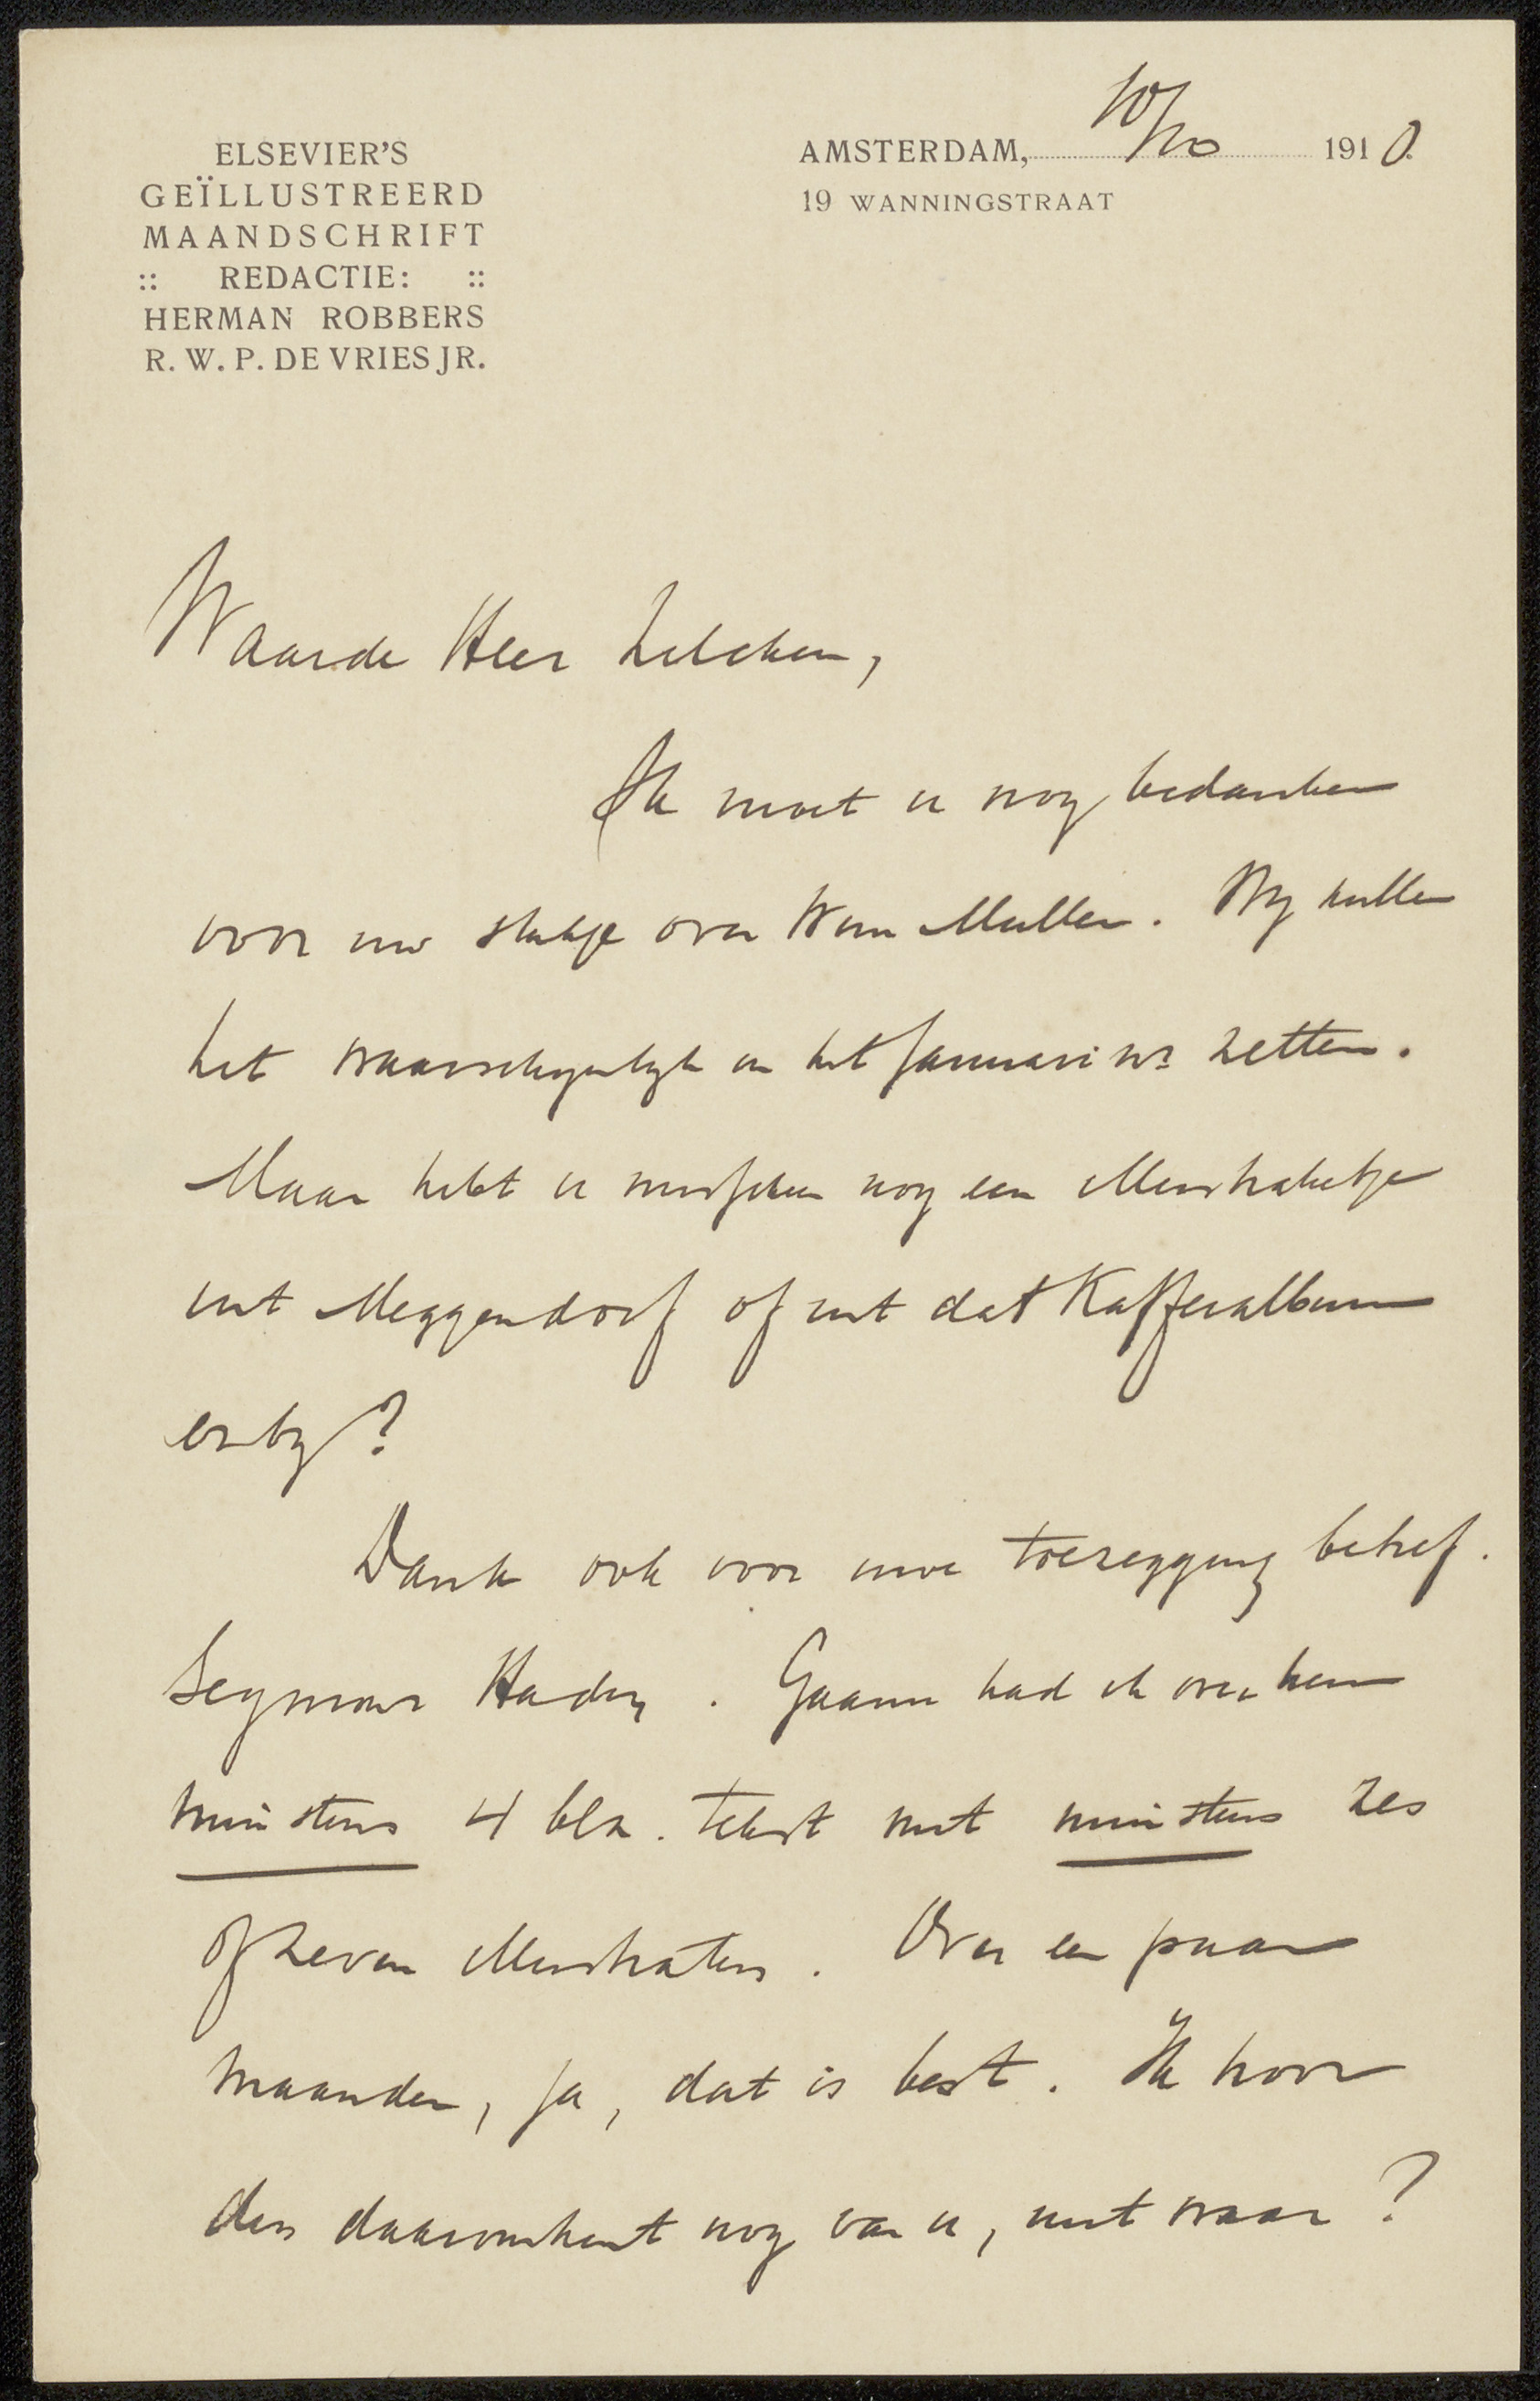 ELSEVIER'S
GEÏLLUSTREERD
MAANDSCHRIFT
:: REDACTIE: ::
HERMAN ROBBERS
R. W. P. DE VRIES JR.
AMSTERDAM, 10/10 1910.
19 WANNINGSTRAAT
Waarde Heer Zilcken,
Ik moet u nog bedanken
voor uw stukje over Wm Muller. Wy zullen
het waarschynlyk in het Januari nr zetten.
Maar hebt u misschien nog een illustratietje
uit Meggendorf of uit dat Kafferalbum
erby?
Dank ook voor uwe toezegging betref.
Seymour Haden. Gaarne had ik over hem
minstens 4 blz. tekst met minstens zes
of zeven illustraties. Over een paar
maanden, ja, dat is best. Ik hoor
dus daaromtrent nog van u, niet waar?